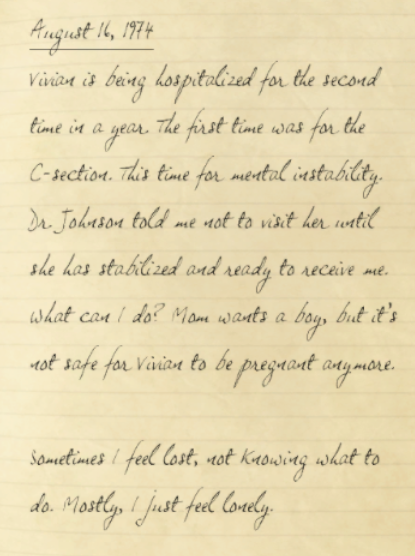 August 16, 1974
Vivian is being hospitalized for the second
time in a year. The first time was for the
C-section. This time for mental instability.
Dr. Johnson told me not to visit her until
she has stabilized and ready to receive me.
What can I do? Mom wants a boy, but it's
not safe for Vivian to be pregnant anymore.
Sometimes I feel lost, not knowing what to
do. Mostly, I just feel lonely.